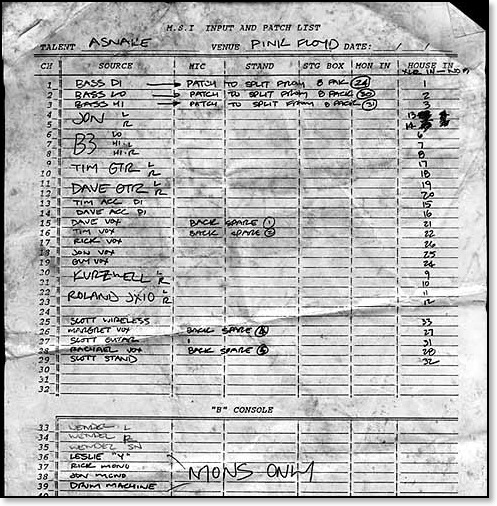 M.S.I INPUT AND PATCH LIST
TALENT ASNAKE VENUE PINK FLOYD DATE: / /
CH SOURCE MIC STAND STG BOX MON IN HOUSE IN
XLR IN
1 BASS DI → PATCH TO SPLIT FROM B PAIR 1
2 BASS LO → PATCH TO SPLIT FROM B PAIR (30) 2
3 BASS HI → PATCH TO SPLIT FROM B PAIR (31) 3
4 JON L 13
5 R 14
6 B3 LO 6
7 HI-L 7
8 HI-R 8
9 TIM GTR L 17
10 R 18
11 DAVE GTR L 19
12 R 20
13 TIM ACC DI 15
14 DAVE ACC DI 16
15 DAVE VOX BACK SPARE (1) 21
16 TIM VOX BACK SPARE 22
17 RICK VOX 26
18 JON VOX 25
19 GUY VOX 24
20 KURZWELL L 9
21 R 10
22 ROLAND JX10 L 11
23 R 12
24
25 SCOTT WIRELESS 33
26 MARGRET VOX BACK SPARE 27
27 SCOTT GUITAR 31
28 RACHAEL VOX BACK SPARE 28
29 SCOTT STAND 32
30
31
32
"B" CONSOLE
33 WENDEL L
34 WENDEL R
35 WENDEL SN
36 LESLIE "Y"
37 RICK MONO MONS ONLY
38 JON MONO
39 DRUM MACHINE